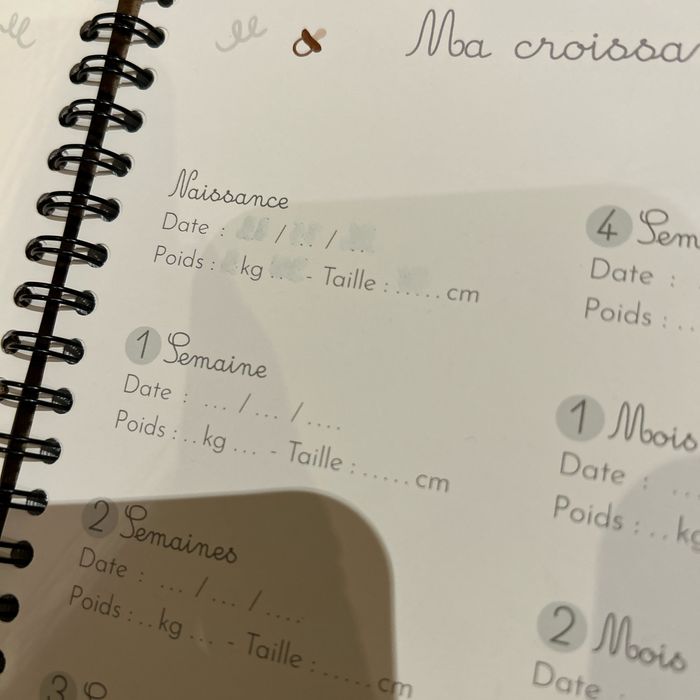 Ma croissa
Naissance
Date : / .. / ...
Poids : kg ... - Taille : ...... cm
1 Semaine
Date : ... / ... / ....
Poids : .. kg ... - Taille : ...... cm
2 Semaines
Date : ... / ... / ....
Poids : .. kg ... - Taille : ...... cm
3
4 Sem
Date :
Poids : ..
1 Mois
Date : ...
Poids : .. kg
2 Mois
Date